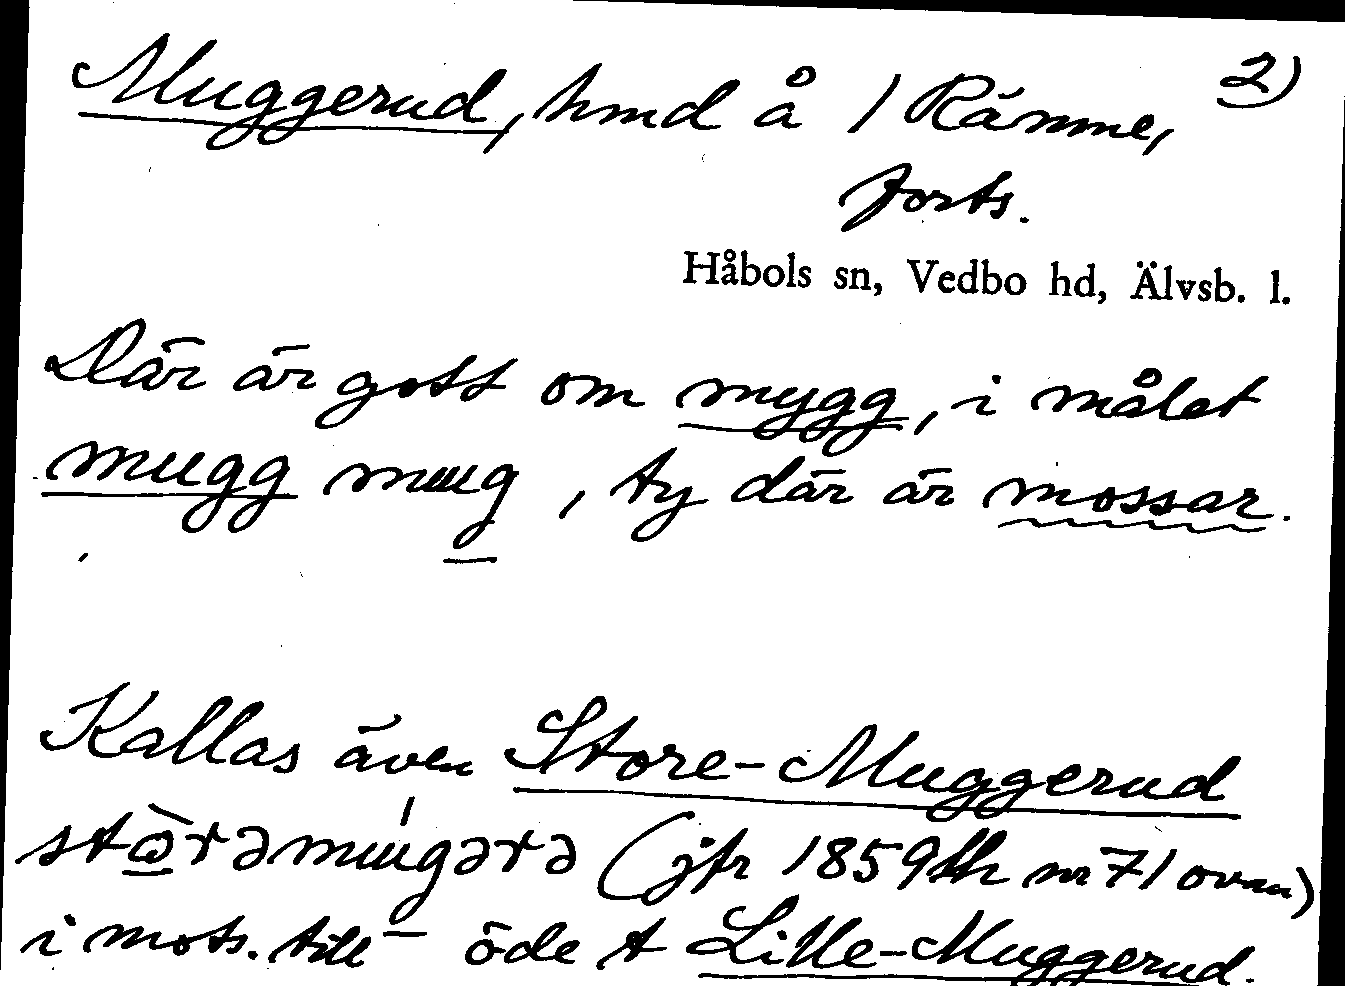 Muggerud, hmd å 1 Rämne, 2)
forts.
Håbols sn, Vedbo hd, Älvsb. l.
Där är gott om mygg, i målet
mugg mɯg, ty där är mossar.
Kallas även Store-Muggerud
(jfr 1859 nr 71 ovan)
i mots. till öde t Lille-Muggerud.